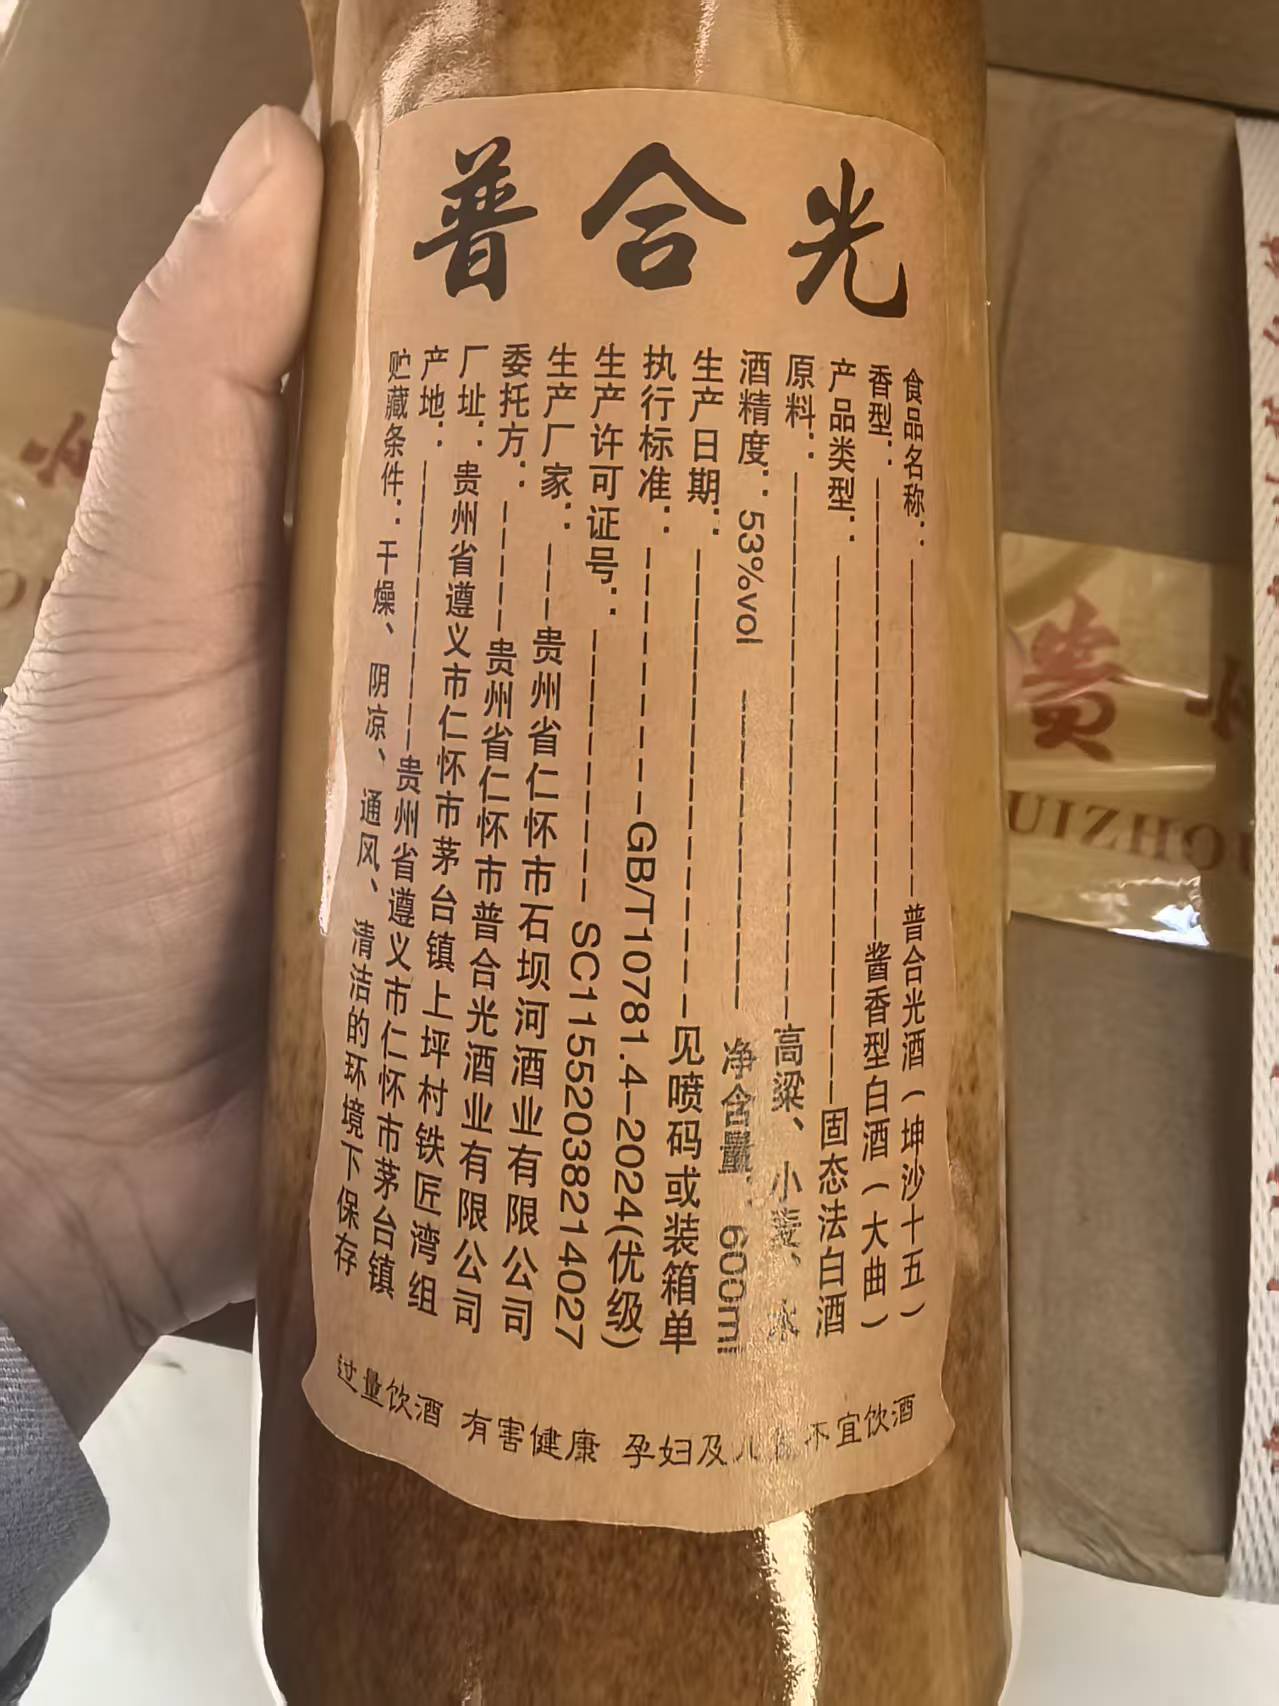 普合光
食品名称：普合光酒（坤沙十五）
香型：酱香型白酒（大曲）
产品类型：固态法白酒
原料：高粱、小麦、水
酒精度：53%vol 净含量：600ml
生产日期：见喷码或装箱单
执行标准：GB/T10781.4-2024(优级)
生产许可证号：SC11552038214027
生产厂家：贵州省仁怀市石坝河酒业有限公司
委托方：贵州省仁怀市普合光酒业有限公司
厂址：贵州省遵义市仁怀市茅台镇上坪村铁匠湾组
产地：贵州省遵义市仁怀市茅台镇
贮藏条件：干燥、阴凉、通风、清洁的环境下保存
过量饮酒 有害健康 孕妇及儿童不宜饮酒
贵州